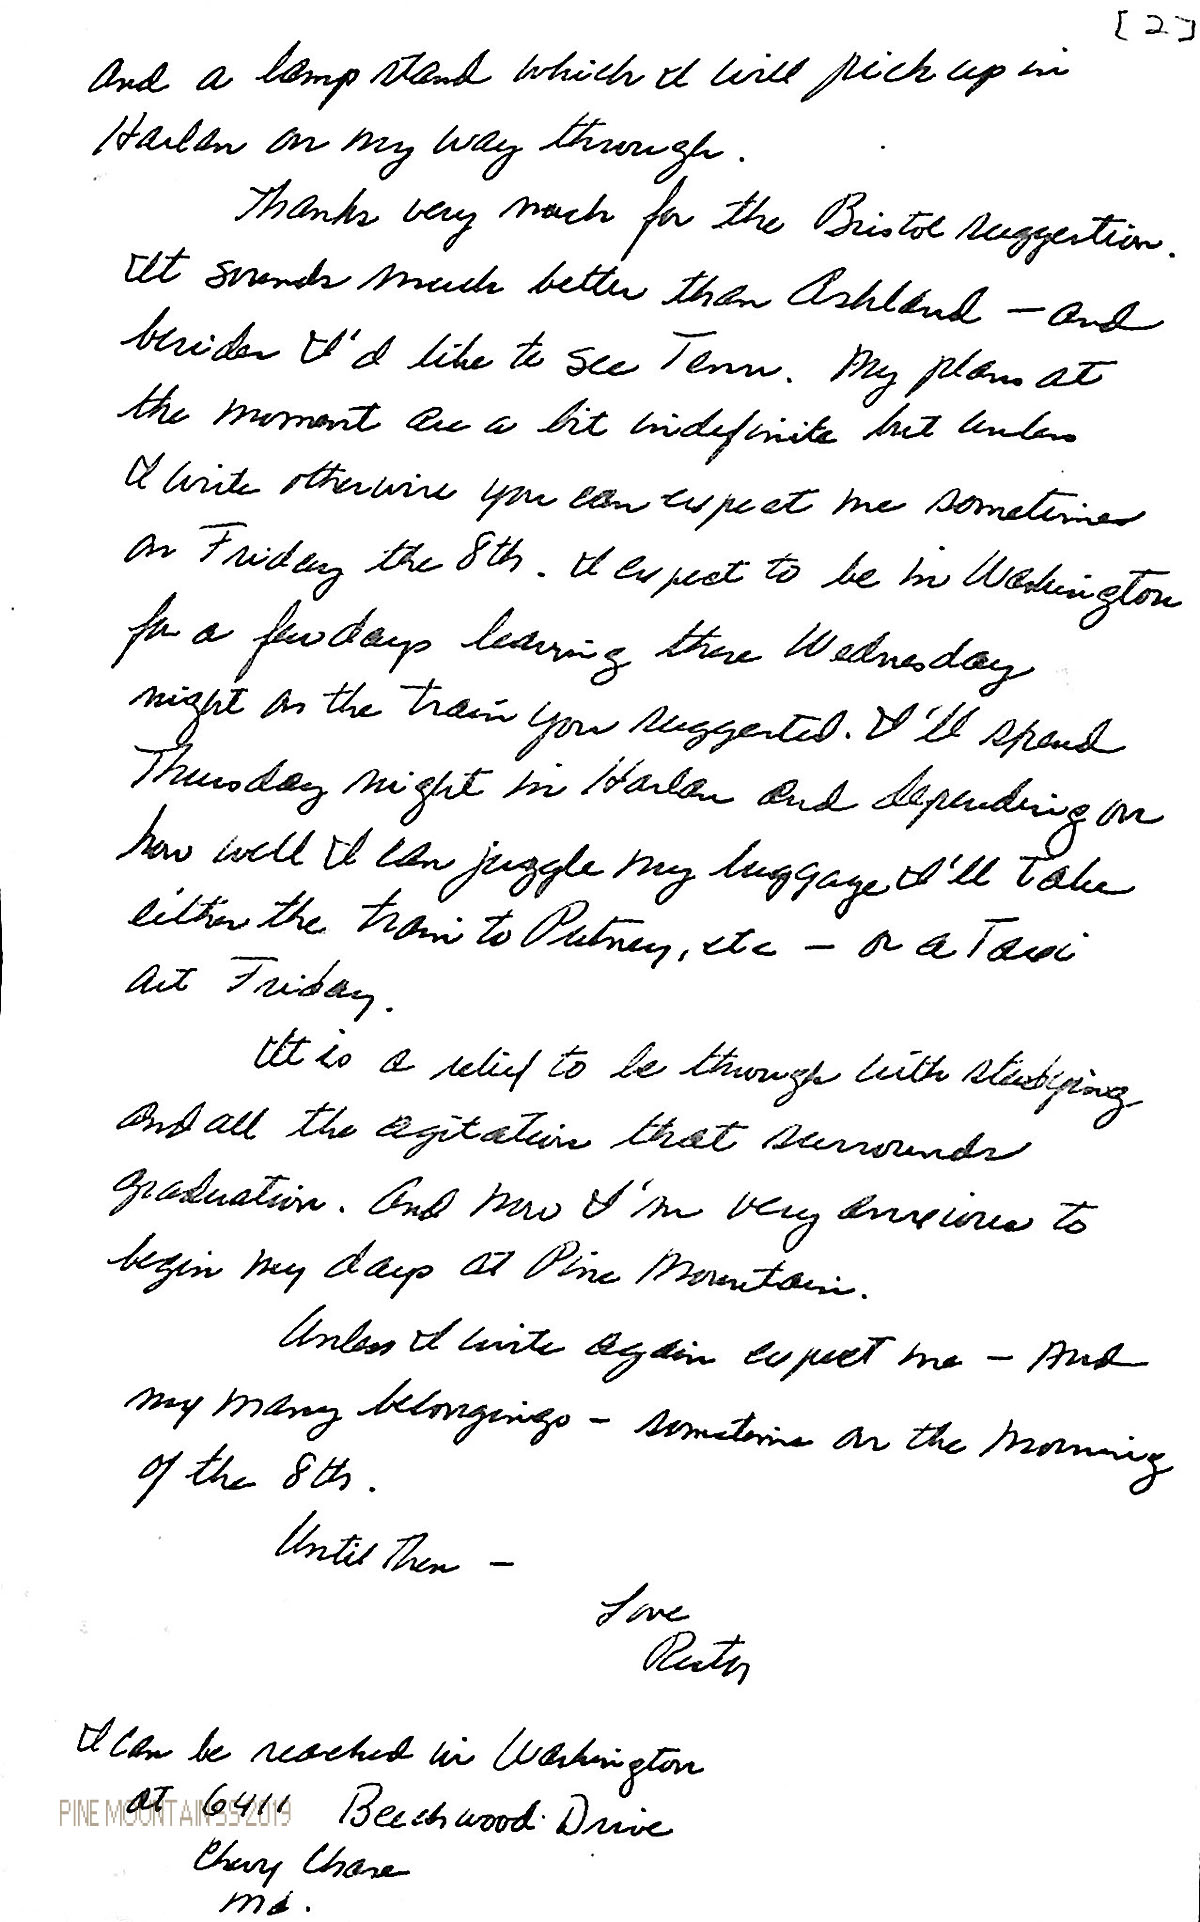 [2]
and a lamp stand which I will pick up in
Harlan on my way through.
Thanks very much for the Bristol suggestion.
It sounds much better than Ashland – and
besides I'd like to see Tenn. My plans at
the moment are a bit indefinite but unless
I write otherwise you can expect me sometime
on Friday the 8th. I expect to be in Washington
for a few days leaving there Wednesday
night on the train you suggested. I'll spend
Thursday night in Harlan and depending on
how well I can juggle my luggage I'll take
either the train to Putney, etc – or a Taxi
Friday.
It is a relief to be through with studying
and all the agitation that surrounds
graduation. And now I'm very anxious to
begin my days at Pine Mountain.
Unless I write again expect me – And
my many belongings – sometime on the morning
of the 8th.
Until Then –
Love
I can be reached in Washington
at 6411 Beechwood Drive
Chevy Chase
Md.
PINE MOUNTAIN SS 2019